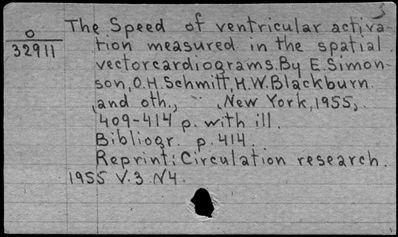 3
The Speed of ventricular activa-
O
32911
tion measured in the spatial
vectorcardiograms. By E. Simon-
son, O.H. Schmitt, H.W. Blackburn
and oth., New York, 1955,
409-414 p. with ill.
Bibliogr. p. 414.
Reprint: Circulation research.
1955 V.3 N4.